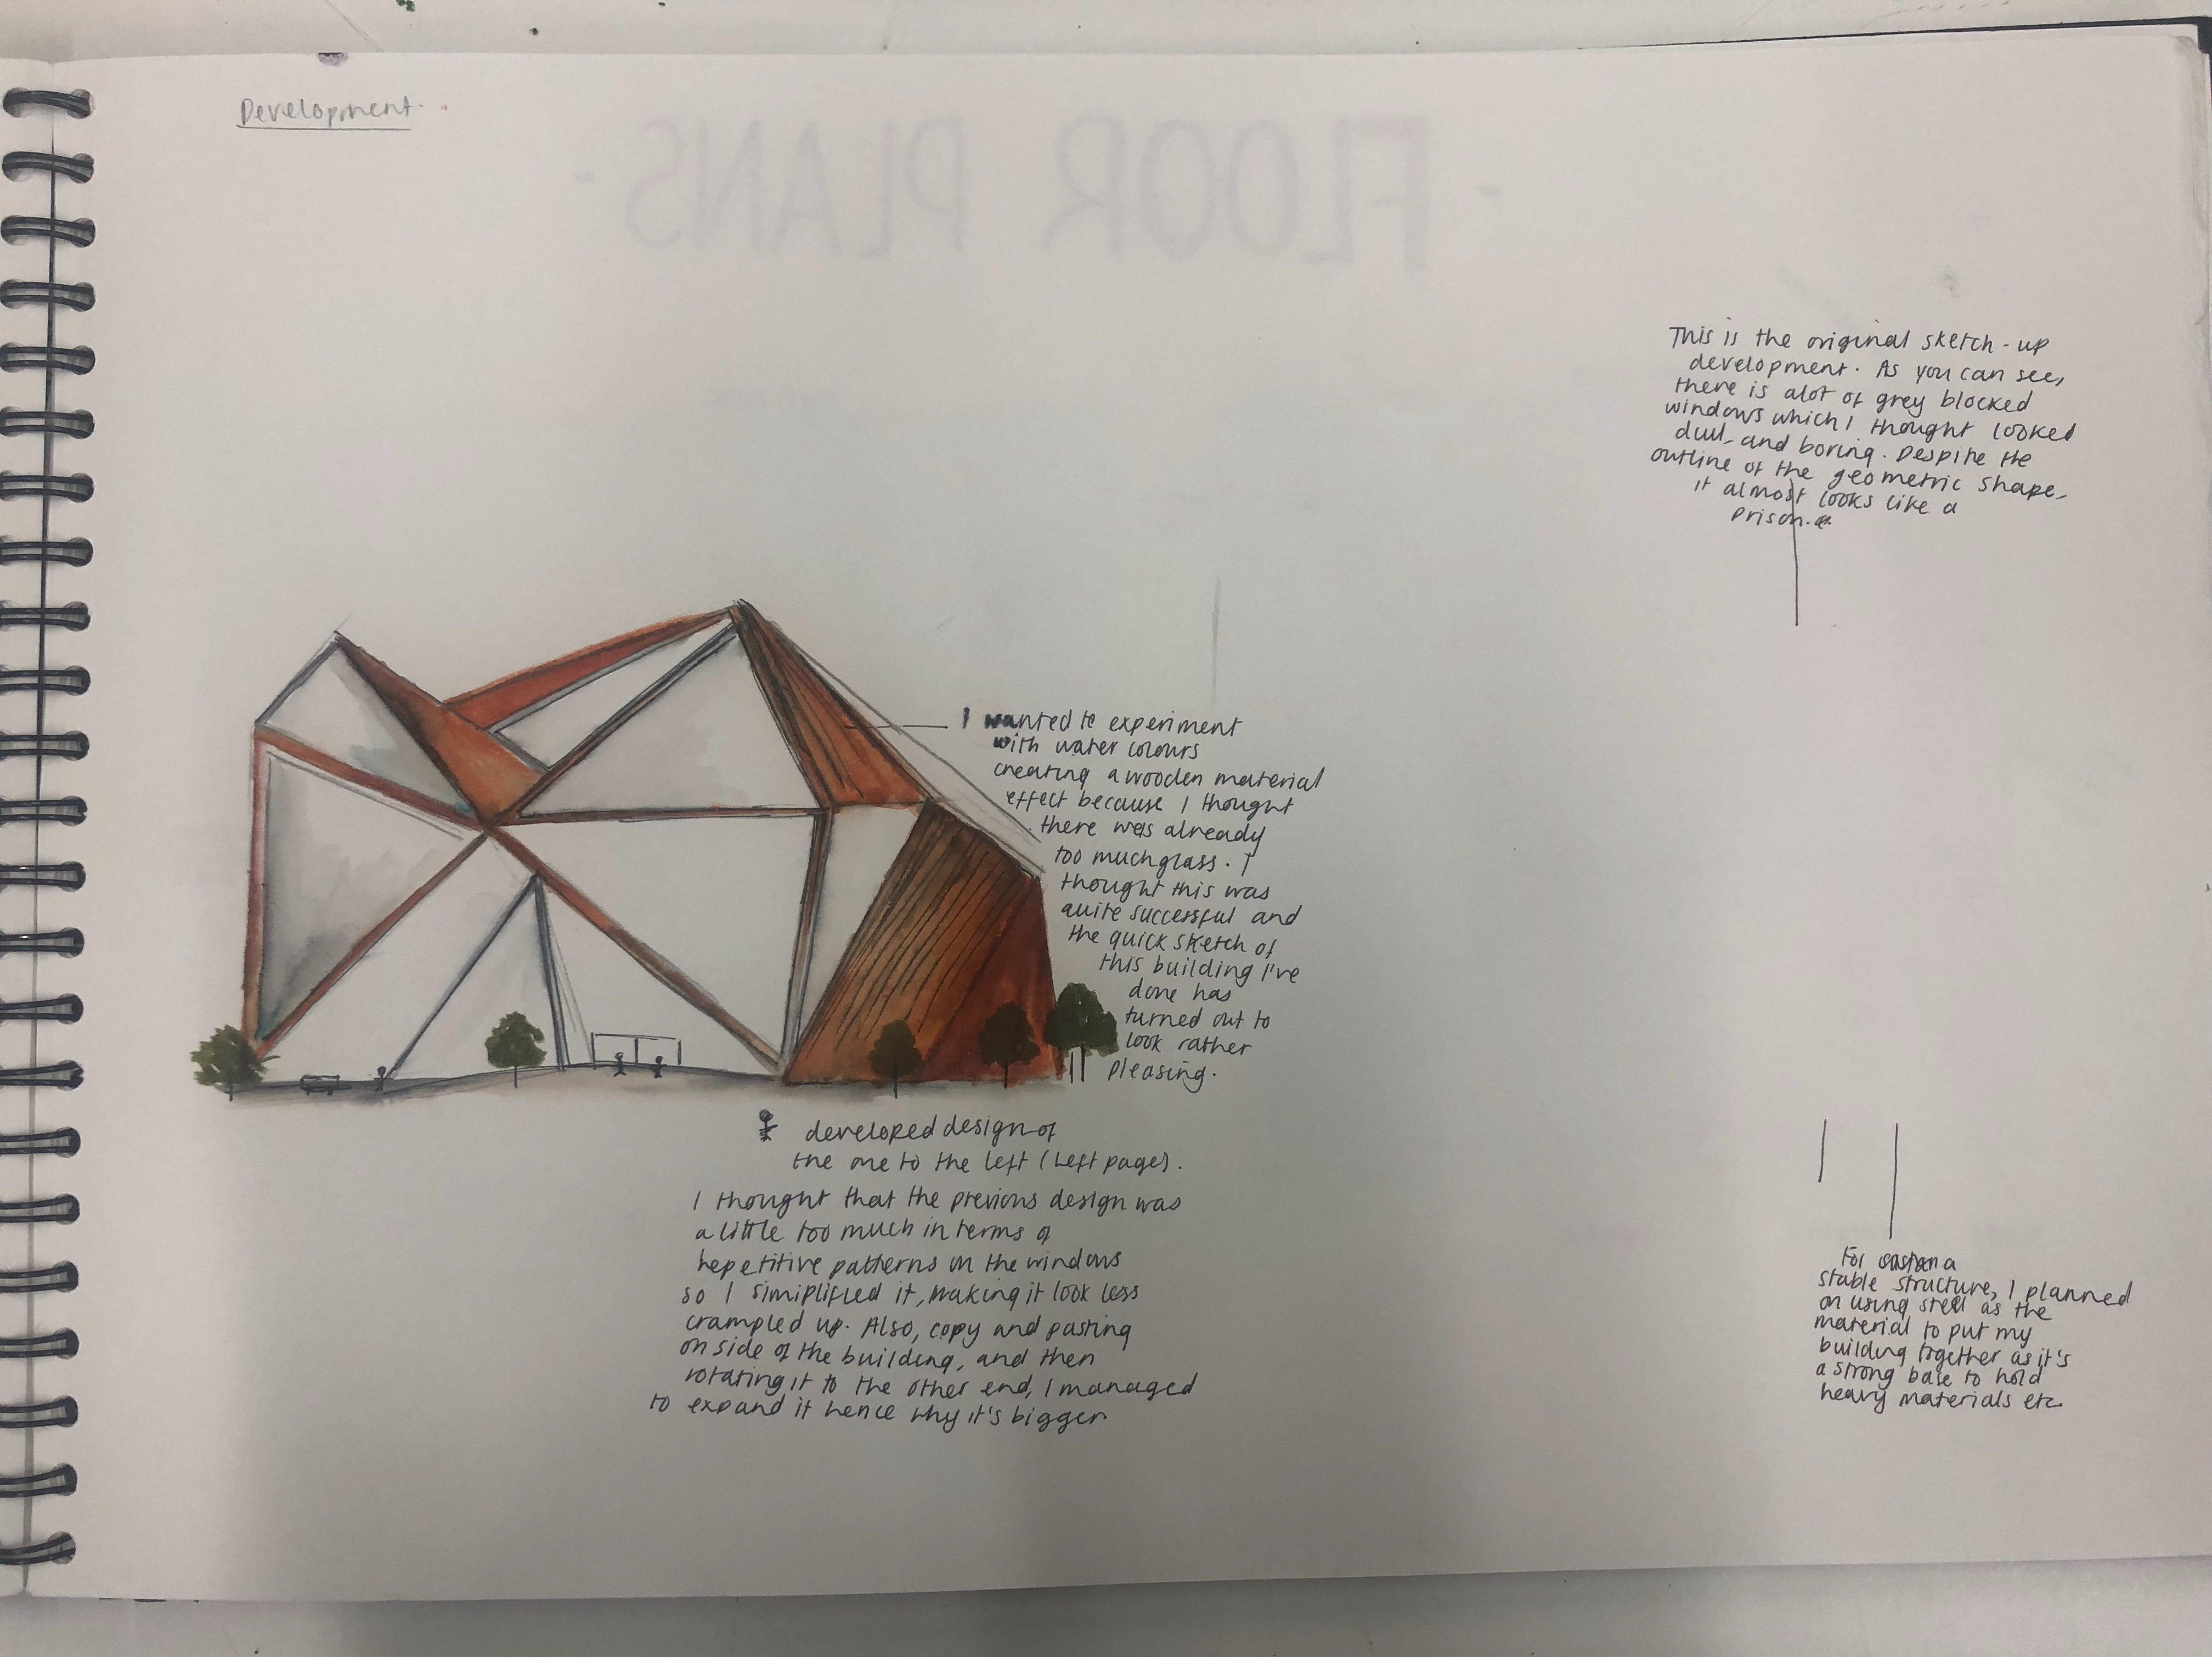 Development.
- FLOOR PLANS -
This is the original sketch-up
development. As you can see,
there is alot of grey blocked
windows which I thought looked
dull, and boring. Despite the
outline of the geometric shape,
it almost looks like a
prison.
I wanted to experiment
with water colours
creating a wooden material
effect because I thought
there was already
too much glass. I
thought this was
quite successful and
the quick sketch of
this building I've
done has
turned out to
look rather
pleasing.
developed design of
the one to the left (left page).
I thought that the previous design was
a little too much in terms of
repetitive patterns on the windows
so I simiplified it, making it look less
crampled up. Also, copy and pasting
on side of the building, and then
rotating it to the other end, I managed
to expand it hence why it's bigger.
For a
stable structure, I planned
on using steel as the
material to put my
building together as it's
a strong base to hold
heavy materials etc.